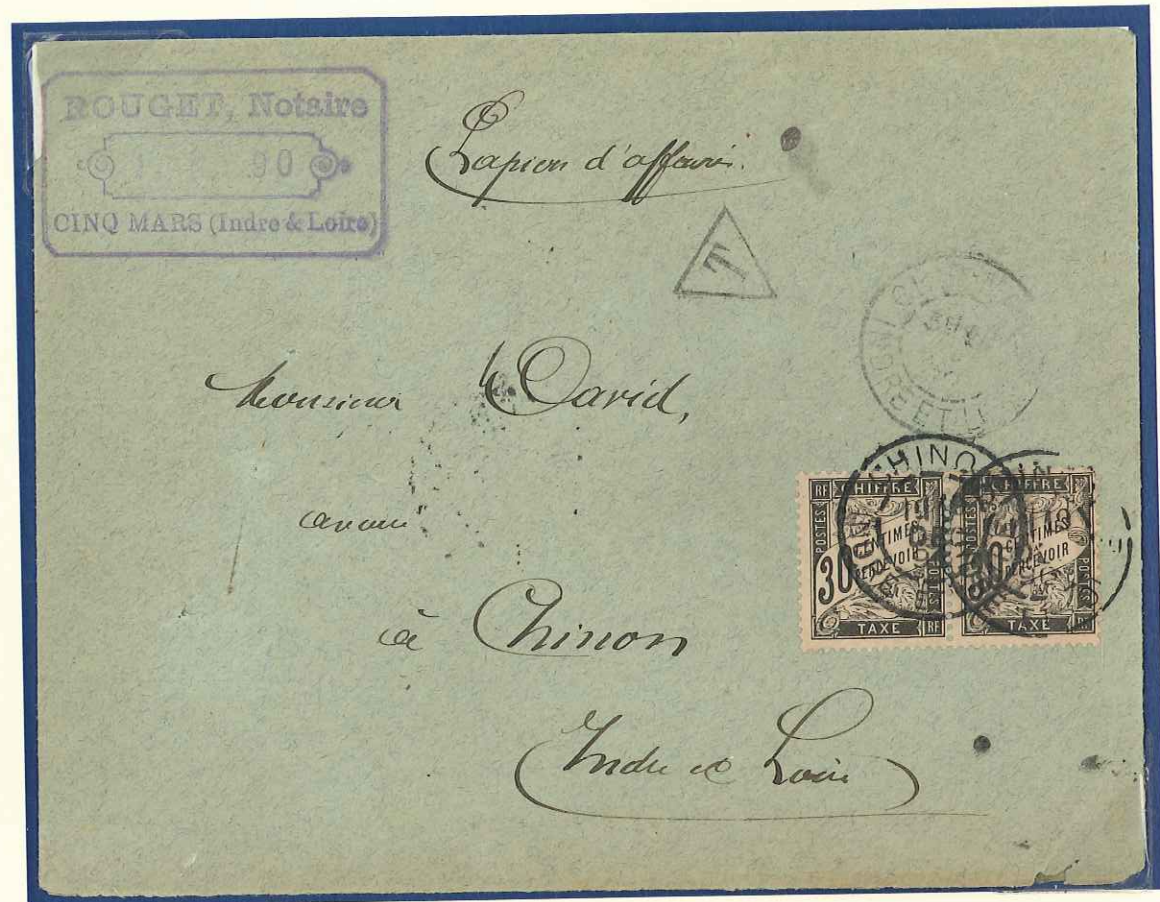 ROUGET, Notaire
90
CINQ MARS (Indre & Loire)
Papiers d'affaires.
T
Monsieur David,
avoué
à Chinon
Indre et Loire
INDRE ET L
CHINON
RF CHIFFRE
POSTES
30 CENTIMES
À PERCEVOIR
POSTES
TAXE RF
RF CHIFFRE
POSTES
30 CENTIMES
À PERCEVOIR
POSTES
TAXE RF